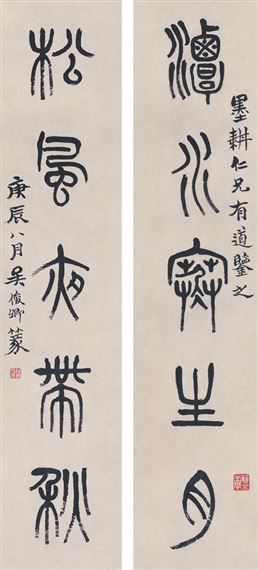 墨耕仁兄有道鑒之
潭水寒生月
松風夜帶秋
庚辰八月吳俊卿篆